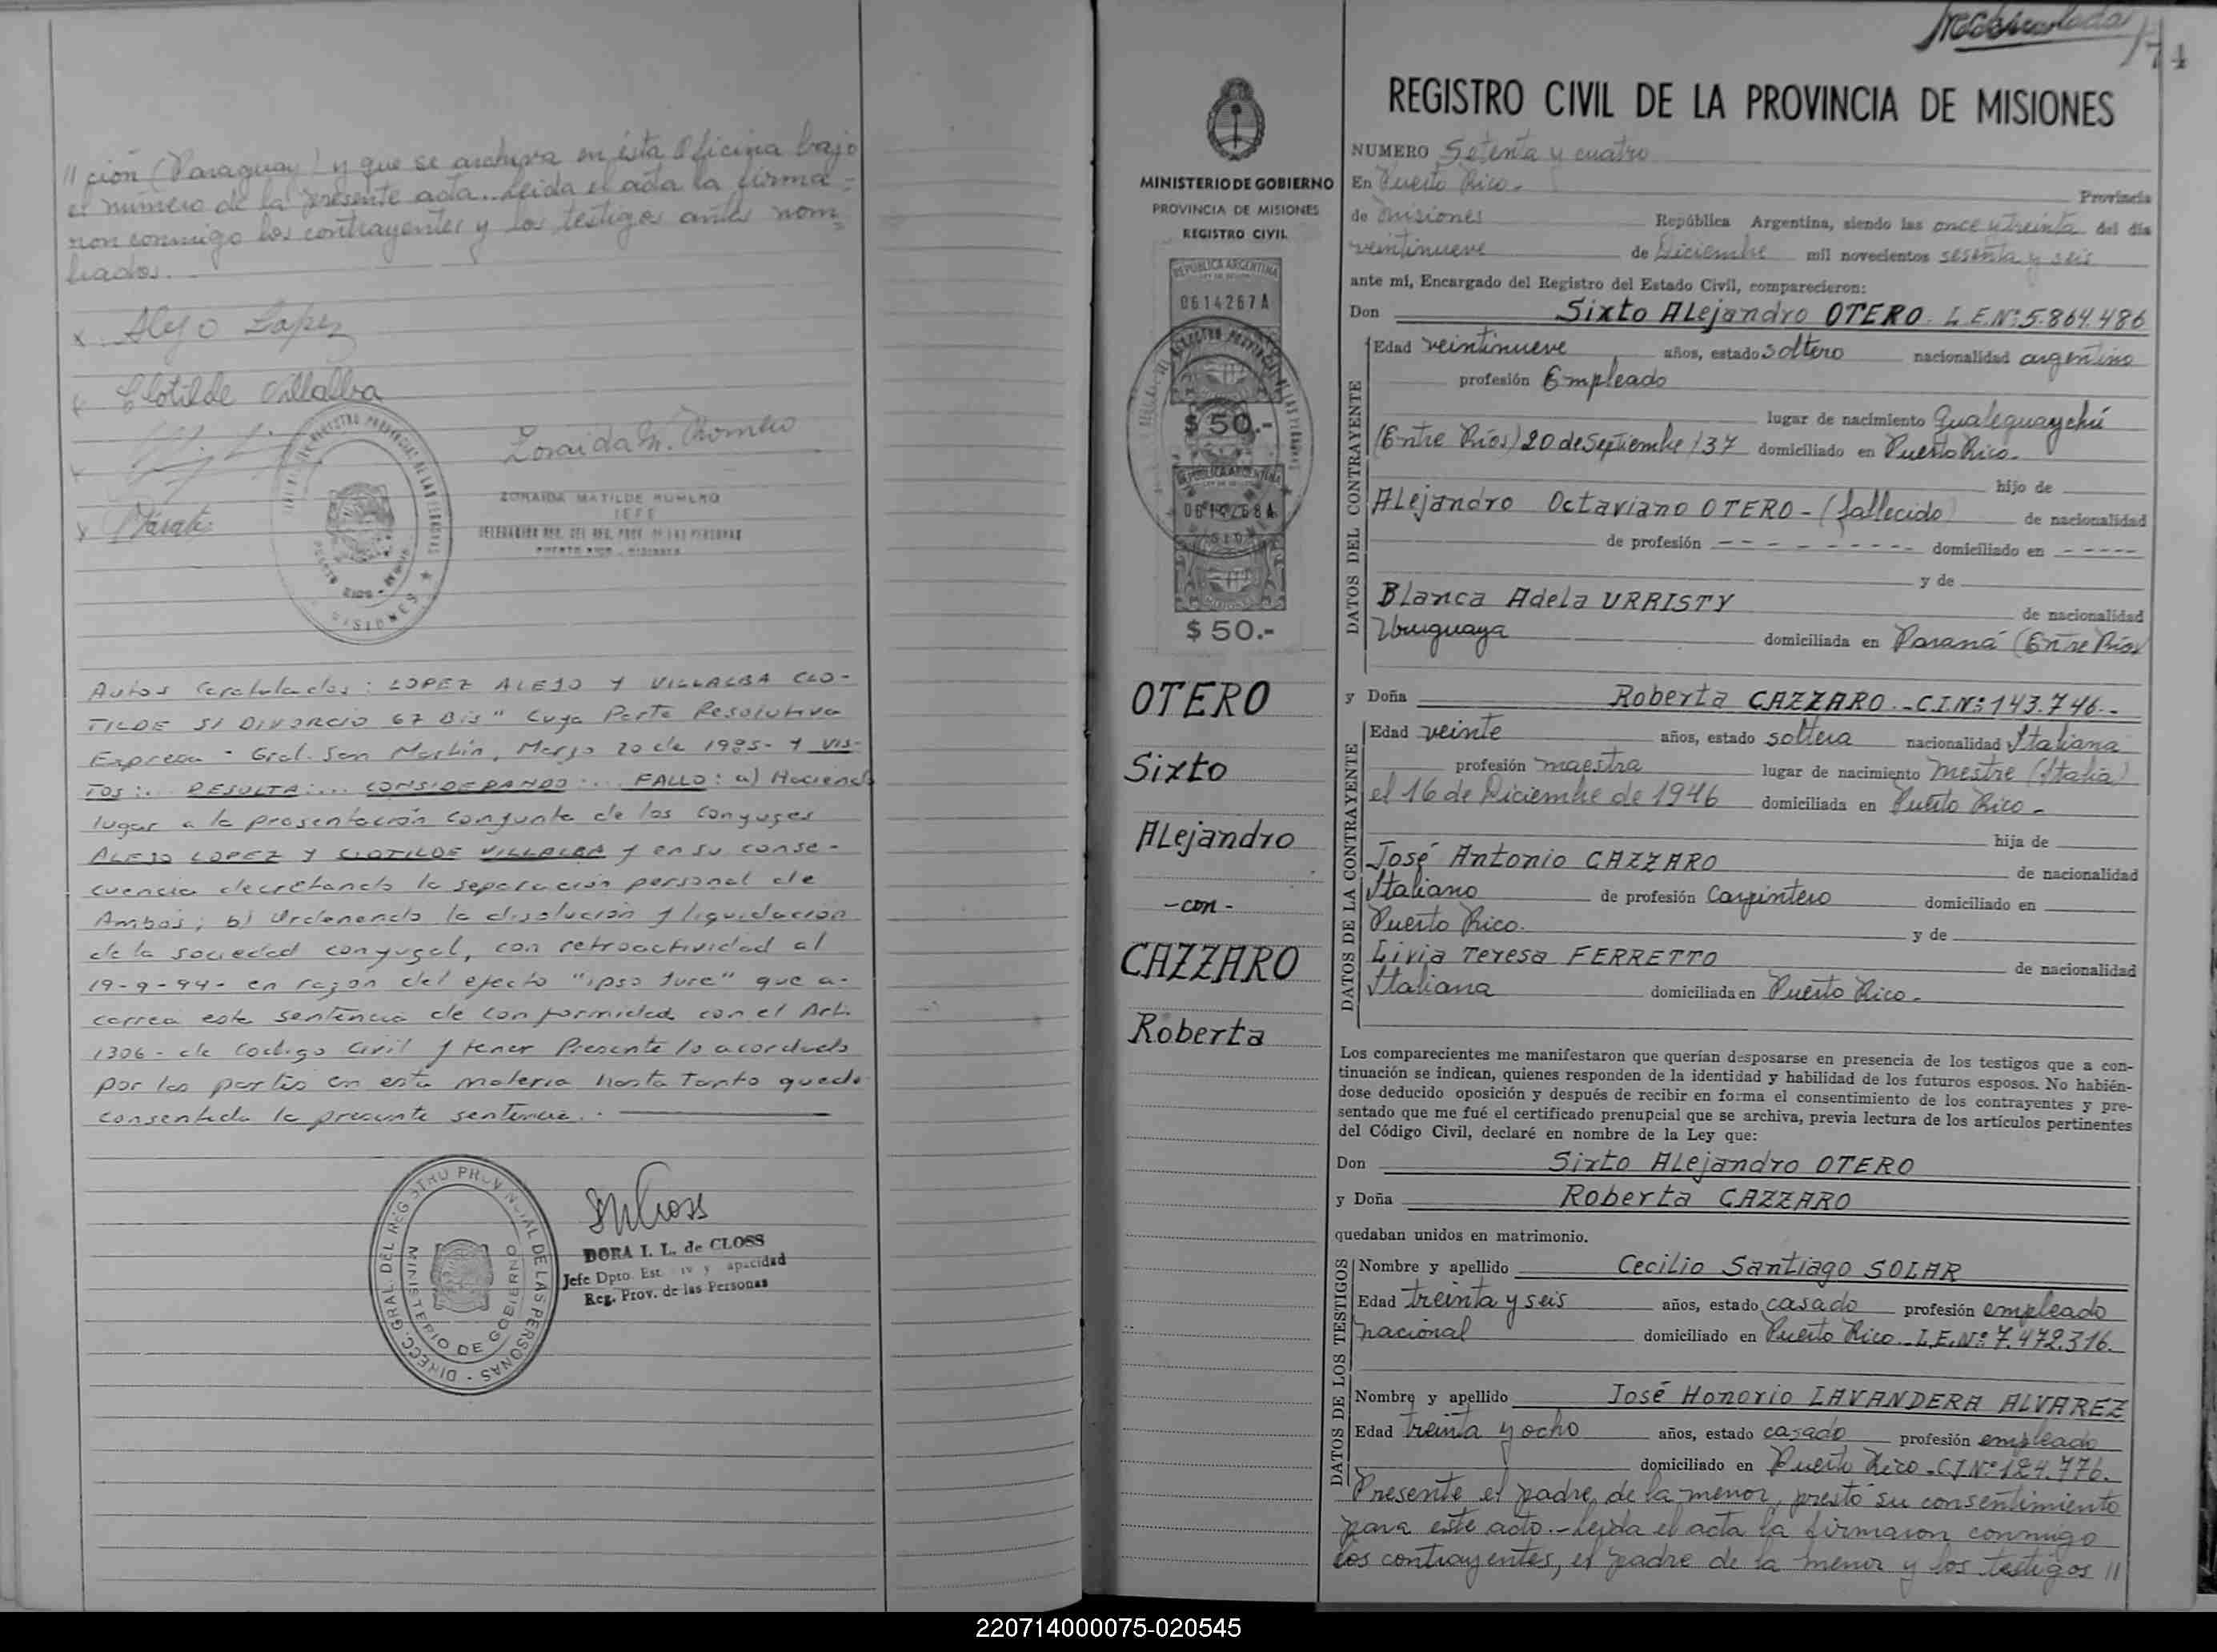 // ción (Paraguay) y que se archiva en ésta Oficina bajo
el número de la presente acta.. Leida el acta la firma=
ron conmigo los contrayentes y los testigos antes nom=
brados.
x Alejo Lopez
x Clotilde Villalba
Zoraida M. Romero
ZORAIDA MATILDE ROMERO
JEFE
DELEGACION REG. DEL REG. PROV. DE LAS PERSONAS
PUERTO RICO - MISIONES
Autos Caratulados: LOPEZ ALEJO Y VILLALBA CLO-
TILDE S/ DIVORCIO 67 Bis" Cuya Parte Resolutiva
Expresa - Gral. San Martín, Marzo 20 de 1995- Y VIS-
TOS:... RESULTA:... CONSIDERANDO:... FALLO: a) Haciendo
lugar a la presentación conjunta de los conyuges
ALEJO LOPEZ Y CLOTILDE VILLALBA y en su conse-
cuencia decretando la separación personal de
Ambos; b) Ordenando la disolución y liquidación
de la sociedad conyugal, con retroactividad al
19-9-94- en razon del efecto "ipso Jure" que a-
carrea esta sentencia de conformidad con el Art.
1306- de Codigo Civil y tener Presente lo acordado
por las partes en esta materia hasta Tanto quede
consentida la presente sentencia.
DIRECC. GRAL. DEL REGISTRO PROVINCIAL DE LAS PERSONAS
MINISTERIO DE GOBIERNO
DORA I. L. de CLOSS
Jefe Dpto. Est. y apacidad
Reg. Prov. de las Personas
74
MINISTERIO DE GOBIERNO
PROVINCIA DE MISIONES
REGISTRO CIVIL
REPUBLICA ARGENTINA
0614267A
$ 50.-
REPUBLICA ARGENTINA
0614268A
$ 50.-
OTERO
Sixto
ALejandro
-con-
CAZZARO
Roberta
REGISTRO CIVIL DE LA PROVINCIA DE MISIONES
NUMERO Setenta y cuatro
En Puerto Rico. Provincia
de Misiones República Argentina, siendo las once y treinta del día
veintinueve de Diciembre mil novecientos sesenta y seis
ante mí, Encargado del Registro del Estado Civil, comparecieron:
Don Sixto ALejandro OTERO. L.E.Nº:5.864.486
DATOS DEL CONTRAYENTE
Edad veintinueve años, estado soltero nacionalidad argentino
profesión Empleado
lugar de nacimiento Gualeguaychú
(Entre Ríos) 20 de Septiembre/37 domiciliado en Puerto Rico.
hijo de
ALejandro Octaviano OTERO - (fallecido) de nacionalidad
de profesión - - - - - - - - - domiciliado en - - - - -
y de
BLanca AdeLa URRISTY de nacionalidad
Uruguaya domiciliada en Paraná (Entre Ríos)
y Doña Roberta CAZZARO.-C.I.Nº:143.746.-
DATOS DE LA CONTRAYENTE
Edad veinte años, estado soltera nacionalidad Italiana
profesión maestra lugar de nacimiento Mestre (Italia)
el 16 de Diciembre de 1946 domiciliada en Puerto Rico.
hija de
José Antonio CAZZARO de nacionalidad
Italiano de profesión Carpintero domiciliado en
Puerto Rico. y de
Livia Teresa FERRETTO de nacionalidad
Italiana domiciliada en Puerto Rico.
Los comparecientes me manifestaron que querían desposarse en presencia de los testigos que a con-
tinuación se indican, quienes responden de la identidad y habilidad de los futuros esposos. No habién-
dose deducido oposición y después de recibir en forma el consentimiento de los contrayentes y pre-
sentado que me fué el certificado prenupcial que se archiva, previa lectura de los artículos pertinentes
del Código Civil, declaré en nombre de la Ley que:
Don Sixto ALejandro OTERO
y Doña Roberta CAZZARO
quedaban unidos en matrimonio.
DATOS DE LOS TESTIGOS
Nombre y apellido Cecilio Santiago SOLAR
Edad treinta y seis años, estado casado profesión empleado
nacional domiciliado en Puerto Rico. L.E.Nº:7.472.316.
Nombre y apellido José Honorio LAVANDERA ALVAREZ
Edad treinta y ocho años, estado casado profesión empleado
domiciliado en Puerto Rico. C.I.Nº 124.776.
Presente el padre de la menor, prestó su consentimiento
para este acto.- Leida el acta la firmaron conmigo
los contrayentes, el padre de la menor y los testigos //
220714000075-020545